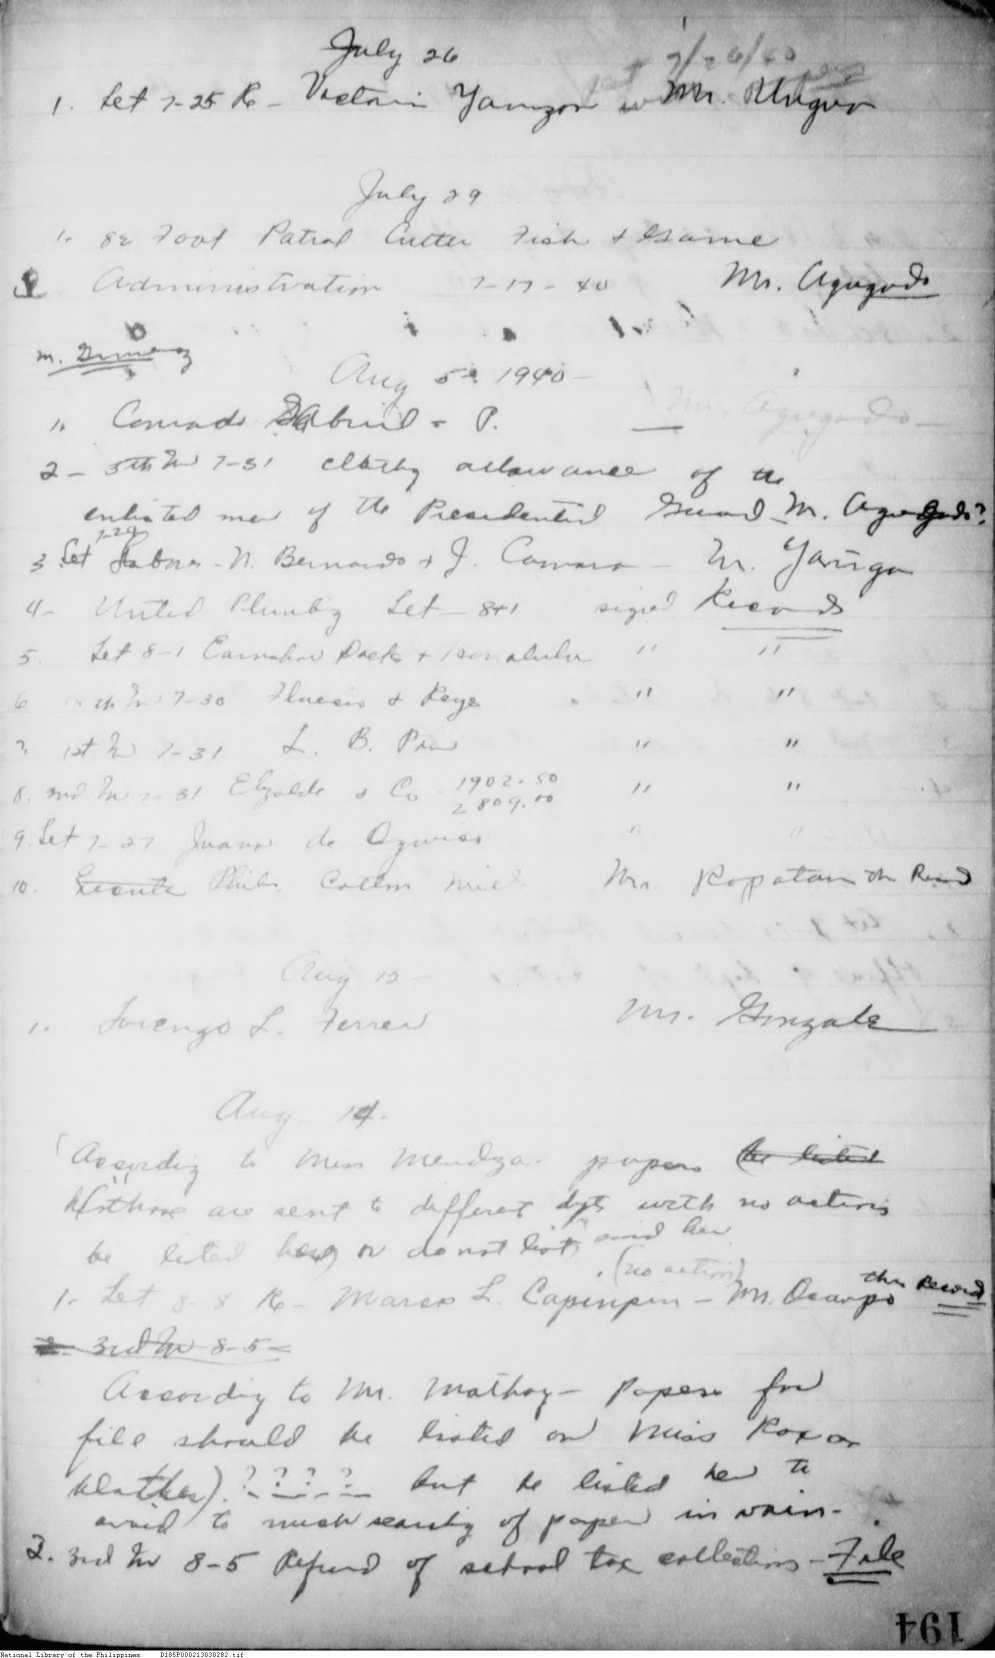 July 26
7/26/40
1. Let 7-25 Re - Victoria Yamzon Mr. Unguon
July 29
1. 82 Foot Patrol Cutter Fish & Game
Administration 7-17-40 Mr. Agugado
M.
Aug 5 - 1940 -
1. Conrado Gabriel - P.
2 - 5th In 7-31 clothg allowance of the
enlisted men of the Presidential Guard - M. Agugado?
7-29
3. Let - N. Bernardo & J. - M. Yañga
4 - United Plumbig Let - 8+1 signed Records
5. Let 8-1 Earnshaw Docks & Honolulu " "
6 th In 7-30 & Reye " "
7. 1st In 7-31 L. B. " "
8. 3rd In 7-31 Elizalde & Co 1902.50 " "
2809.00
9. Let 7-27 Juana de " "
10. Phil. Cotton Mill Mr. Kapatan th Record
Aug 12 -
1. Lorenzo L. Ferrer Mr. Gonzale
Aug 14.
According to Miss Mendoza - papers to be listed
if those are sent to different dpts with no actions
be listed here or do not list, and her
(no action)
1. Let 8-8 Re - Marcos L. Capinpin - Mr. Ocampo thru Record
2. 3rd In 8-5 -
According to Mr. Mathay - Papers for
file should be listed on Miss Roxas
blotter). ? ? ? ? but be listed here to
avoid to much searchg of paper in vain -
2. 3rd In 8-5 Refund of school tax collections - File
194
National Library of the Philippines D185P000213030282.tif